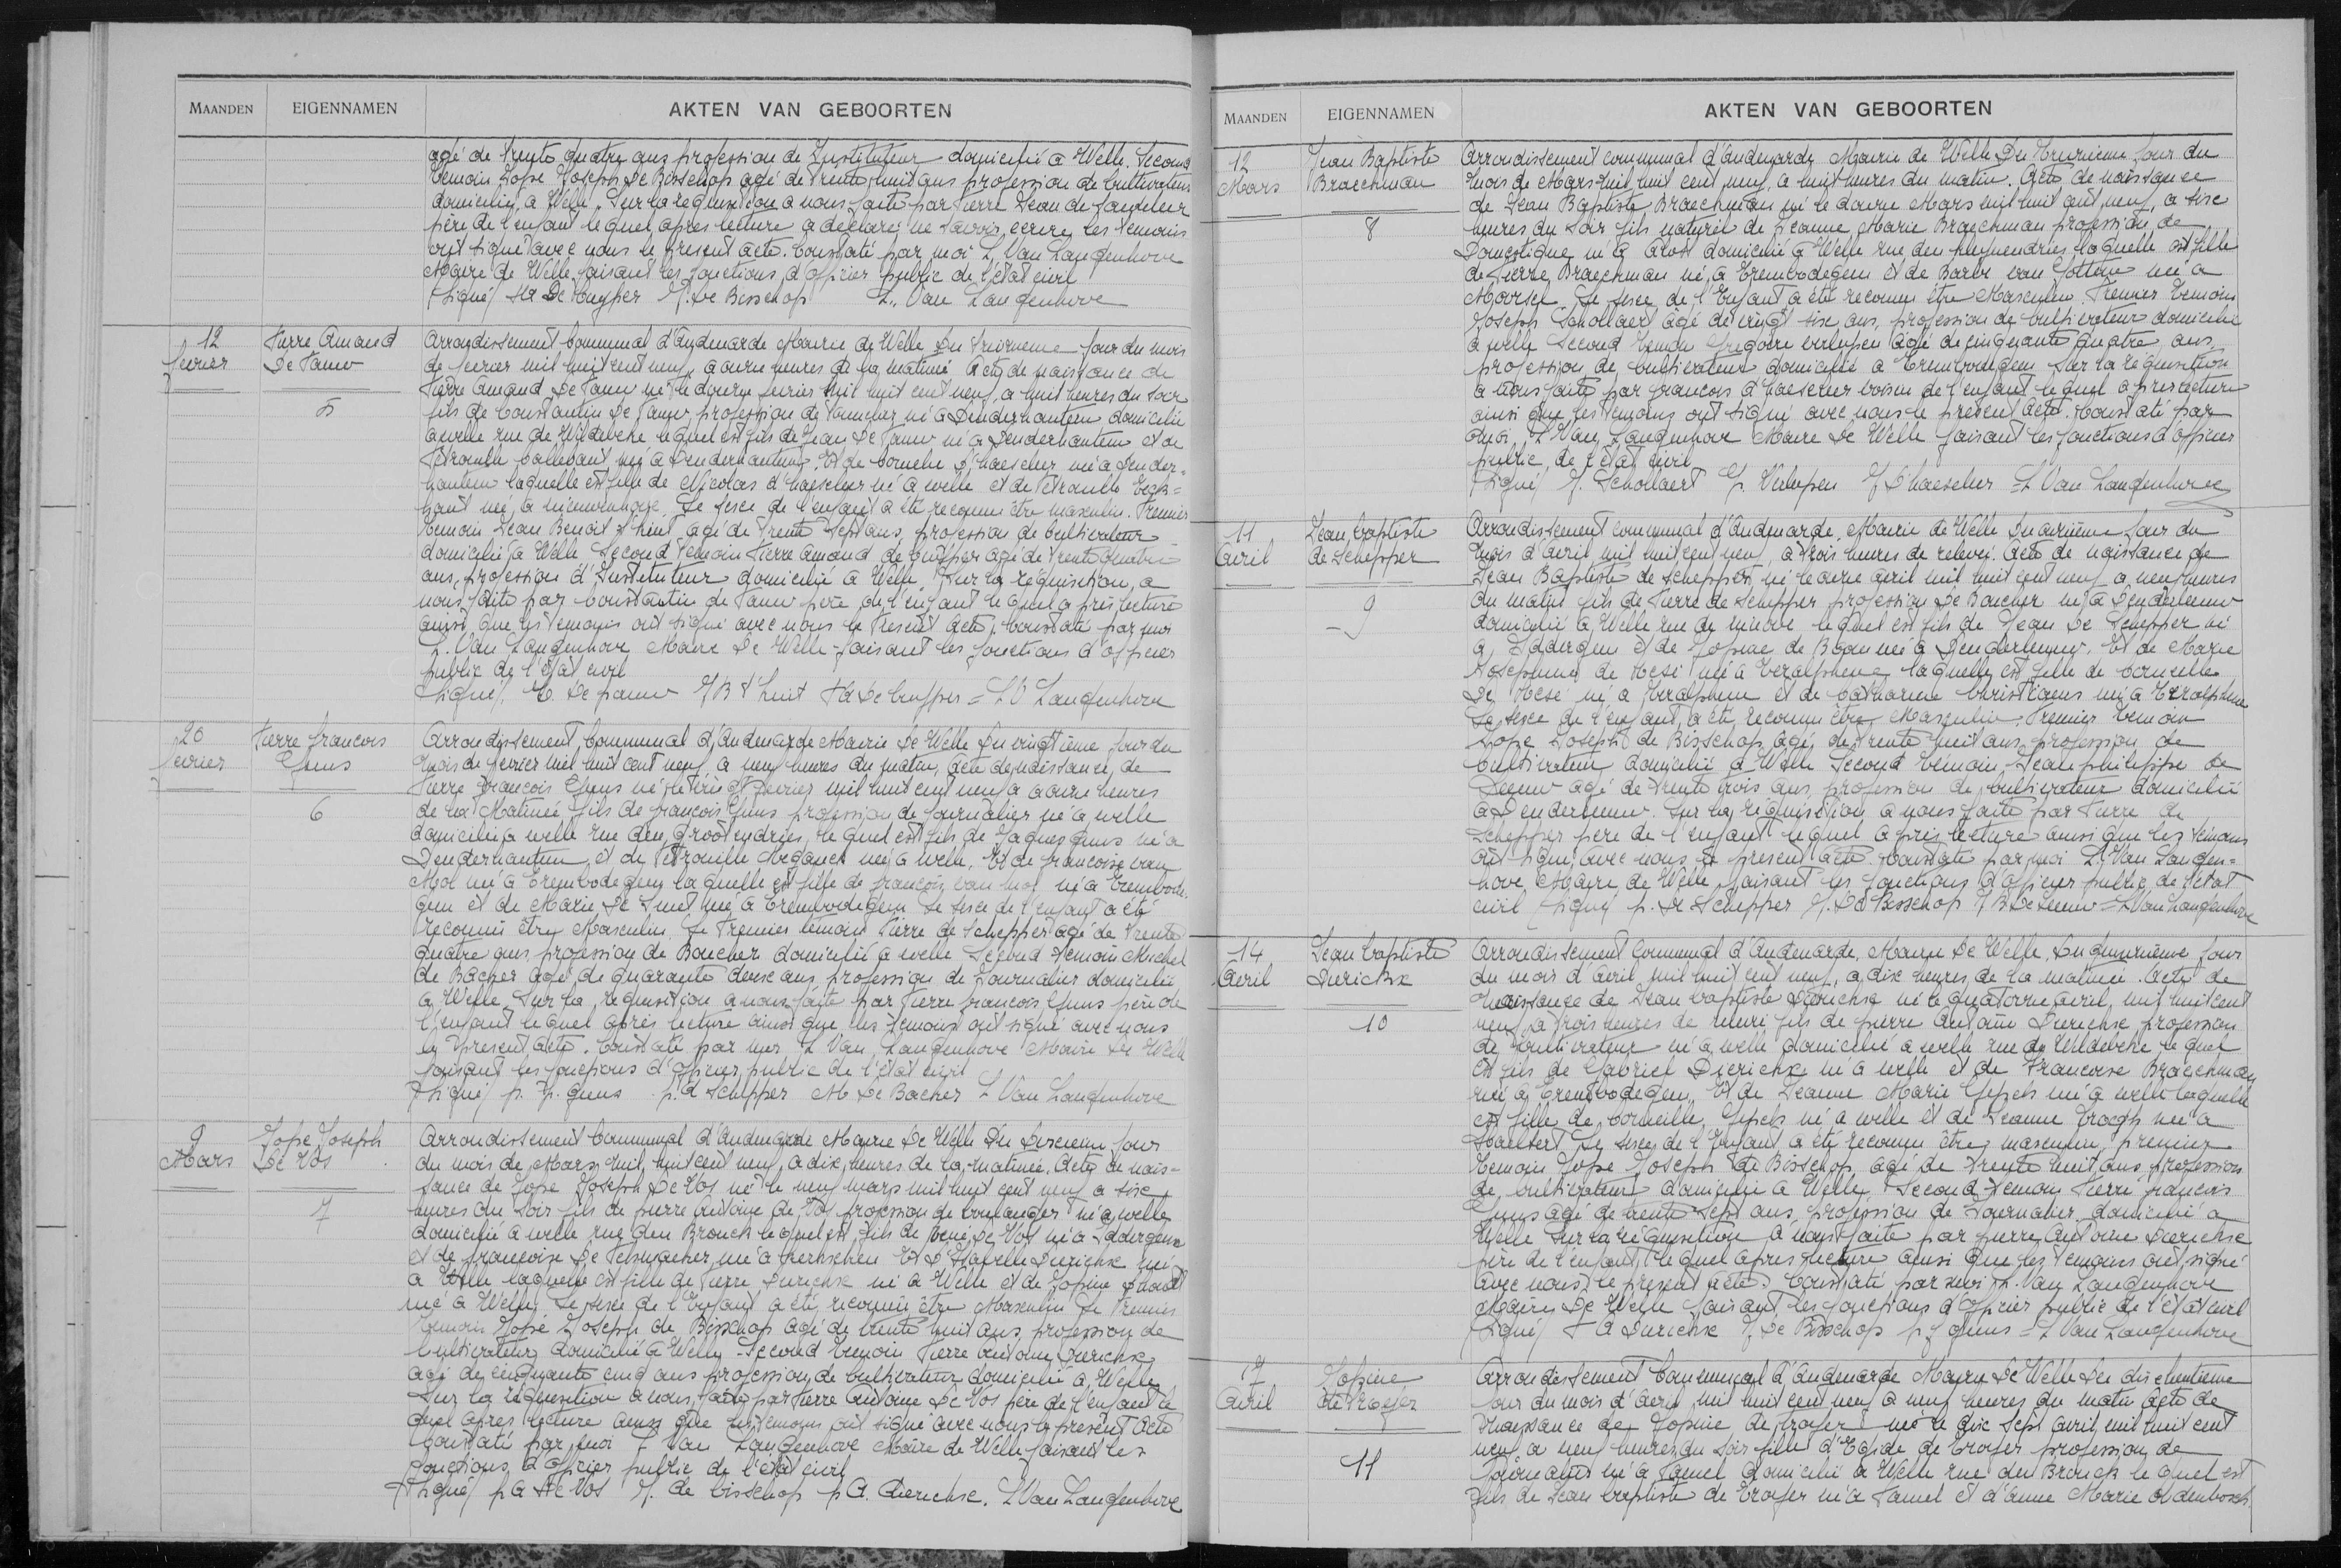 MAANDEN EIGENNAMEN AKTEN VAN GEBOORTEN
agé de trente quatre ans profession de Instituteur domicilié a Welle. Second
temoin Jose Joseph De Bisschop agé de trente huit ans profession de Cultivateur
domicilié a Welle. Sur la requisition a nous faite par Pierre Jean de
père de l'enfant lequel apres lecture a déclaré ne savoir ecrire les temoins
ont signé avec nous le present acte. Constaté par moi L Van Langenhove
Maire de Welle faisant les fonctions d'officier public de l'état civil
(Signé) De Cuyper J. De Bisschop L. Van Langenhove
12 fevrier
Pierre Amand De Pauw
5
Arrondissement Communal d'Audenarde Mairie de Welle Du treizieme jour du mois
de fevrier mil huit cent neuf, a onze heures de la matinée Acte de naissance de
Pierre Amand De Pauw né le douze fevrier mil huit cent neuf, a huit heures du soir
fils de Constantin De Pauw, profession de né a Denderhautem domicilié
a welle rue de Wildebeke lequel est fils de Jean De Pauw né a Denderhautem et de
Petronille née a Denderhautem. Et de D'haeseleer née a Dender=
hautem laquelle est fille de Nicolas d'haeseleer né a welle et de Petronille
née a Le sexe de l'enfant a été reconnu être masculin. Premier
temoin Jean Benoit agé de trente sept ans, profession de Cultivateur
domicilié a Welle Second temoin Pierre Amand de Cuyper agé de trente quatre
ans, profession d'Instituteur domicilié a Welle, Sur la réquisition, a
nous faite par Constantin de Pauw père de l'enfant lequel après lecture
ainsi que les temoins ont signé avec nous le present acte. Constaté par moi
L. Van Langenhove Maire De Welle faisant les fonctions d'officier
public de l'état civil
(Signé) C. De pauw J B De Cuyper = L V Langenhove
20 fevrier
Pierre francois Geuns
6
Arrondissement Communal d'Audenarde Mairie De Welle Du vingtième jour du
mois de fevrier mil huit cent neuf a neuf heures du matin, acte de naissance, de
Pierre François Geuns né le vingt fevrier mil huit cent neuf a heures
de la Matinée, fils de francois Geuns profession de Journalier né a welle
domicilié a welle rue den grootendries, le quel est fils de Jaques Geuns né a
Denderhautem et de Petronille née a welle. Et de francoise van
Mol née a Erembodegem laquelle est fille de francois van Mol né a Erembode
gem et de Marie De Smet née a Erembodegem Le sexe de l'enfant a été
reconnu être Masculin Le Premier temoin Pierre de Schepper agé de trente
quatre ans profession de Boucher domicilié a welle Second temoin Michel
de Bacher agé de quarante deux ans profession de Journalier domicilié
a Welle Sur la requisition a nous faite par Pierre francois Geuns père de
l'enfant lequel après lecture ainsi que les temoins ont signé avec nous
le present acte. Constaté par moi L Van Langenhove Maire De Welle
faisant les fonctions d'officier public de l'état civil
(Signé) p. f. geuns p. d Schepper M De Bacher L Van Langenhove
9 Mars
Jose Joseph De Vos
7
Arrondissement Communal d'Audenarde Mairie De Welle Du Dixieme jour
du mois de Mars mil huit cent neuf, a dix heures de la matinée. Acte de nais=
sance de Jose Joseph De Vos né le neuf mars mil huit cent neuf a six
heures du soir fils de pierre Antoine de Vos profession de boulanger né a welle
domicilié a welle rue den Brouck lequel est fils de De Vos né a
et de francoise De née a Et D'Isabelle Dierickx née
a Welle laquelle est fille de Pierre Dierickx né a Welle et de Josine
née a Welle. Le sexe de l'Enfant a été reconnu être Masculin Le Premier
temoin Jose Joseph de Bisschop agé de trente huit ans, profession de
Cultivateur domicilié a Welle. Second temoin Pierre Antoine Dierickx
agé de cinquante cinq ans profession de Cultivateur domicilié a Welle
Sur la requisition a nous faite par Pierre Antoine De Vos père de l'enfant le
quel apres lecture ainsi que les temoins ont signé avec nous le present Acte
Constaté par moi L Van Langenhove Maire de Welle faisant les
fonctions d'officier public de l'état civil
(Signé) p A De Vos J. de bisschop p A. Dierickx. L Van Langenhove
MAANDEN EIGENNAMEN AKTEN VAN GEBOORTEN
12 Mars
Jean Baptiste Braeckman
8
Arrondissement communal d'Audenarde Mairie de Welle Du treizieme jour du
mois de Mars mil huit cent neuf, a huit heures du matin. Acte de naissance
de Jean Baptiste Braeckman né le douze Mars mil huit cent neuf, a six
heures du soir fils naturel de Jeanne Marie Braeckman profession de
Domestique née a Alost domicilié a Welle rue den laquelle est fille
de Pierre Braeckman né a Erembodegem et de Barbe van née a
Le sexe de l'Enfant a été reconnu être Masculin. Premier temoin
Joseph Schollaert agé de vingt six ans, profession de Cultivateur domicilié
a welle Second temoin Gregoire verlepen agé de cinquante quatre ans
profession de Cultivateur domicilié a Erembodegem Sur la requisition
a nous faite par francois d'haeseleer voisin de l'enfant lequel apres lecture
ainsi que les temoins ont signé avec nous le present Acte. Constaté par
moi L Van Langenhove Maire De Welle faisant les fonctions d'officier
public de l'état civil
(Signé) J. Schollaert G. Verlepen F D'haeseleer = L Van Langenhove
11 Avril
Jean baptiste de Schepper
9
Arrondissement communal d'Audenarde, Mairie de Welle Du onzième jour du
mois d'Avril mil huit cent neuf, a trois heures de relevée. Acte de naissance de
Jean Baptiste de Schepper, né le onze avril mil huit cent neuf a neuf heures
du matin fils de Pierre de Schepper profession De Boucher né a Denderleeuw
domicilié a Welle rue de ninove lequel est fils de Jean De Schepper né
a et de Josine de née a Denderleeuw. Et de Marie
Josephine de née a laquelle est fille de
De né a et de Catharine née a
Le sexe de l'enfant a été reconnu être Masculin. Premier temoin
Jose Joseph de Bisschop agé de trente huit ans profession de
Cultivateur domicilié a Welle Second temoin Jean philippe de
Leeuw agé de trente trois ans, profession de Cultivateur domicilié
a Denderleeuw. Sur la requisition a nous faite par Pierre de
Schepper père de l'enfant lequel après lecture ainsi que les temoins
ont signé avec nous le present acte. Constaté par moi L. Van Langen=
hove Maire de Welle faisant les fonctions d'officier public de l'état
civil (Signé) p. De Schepper J. De Bisschop De Leeuw = L Van Langenhove
14 Avril
Jean baptiste Dierickx
10
Arrondissement Communal d'Audenarde. Mairie De Welle. Du quinzième jour
du mois d'Avril mil huit cent neuf, a dix heures de la matinée. Acte de
Naissance de Jean baptiste Dierickx né le quatorze avril, mil huit cent
neuf a trois heures de fils de pierre Antoine Dierickx, profession
de Cultivateur né a welle domicilié a welle rue de Wildebeke le quel
est fils de Gabriel Dierickx né a welle et de Francoise Braeckman
née a Erembodegem. Et de Jeanne Marie née a welle laquelle
est fille de Corneille né a welle et de Jeanne née a
Le sexe de l'Enfant a été reconnu être masculin, premier
temoin Jose Joseph de Bisschop agé de trente huit ans profession
de Cultivateur domicilié a Welle. Second temoin Pierre francois
Geuns agé de trente sept ans, profession de Journalier domicilié a
Welle Sur la requisition a nous faite par pierre Antoine Dierickx
père de l'enfant, lequel apres lecture ainsi que les temoins ont signé
avec nous le present acte. Constaté par moi L. Van Langenhove
Maire De Welle faisant les fonctions d'officier public de l'état civil
(Signé) P A Dierickx J De Bisschop p f geuns = L Van Langenhove
17 Avril
Josine de Troyer
11
Arrondissement Communal d'Audenarde Mairie De Welle Du dix huitieme
jour du mois d'Avril mil huit cent neuf a neuf heures du matin Acte de
Naissance de Josine de troyer née le dix sept avril mil huit cent
neuf a neuf heures du soir fille d'Egide de troyer profession de
Journalier né a domicilié a Welle rue den Brouck le quel est
fils de Jean baptiste de troyer né a et d'anne Marie